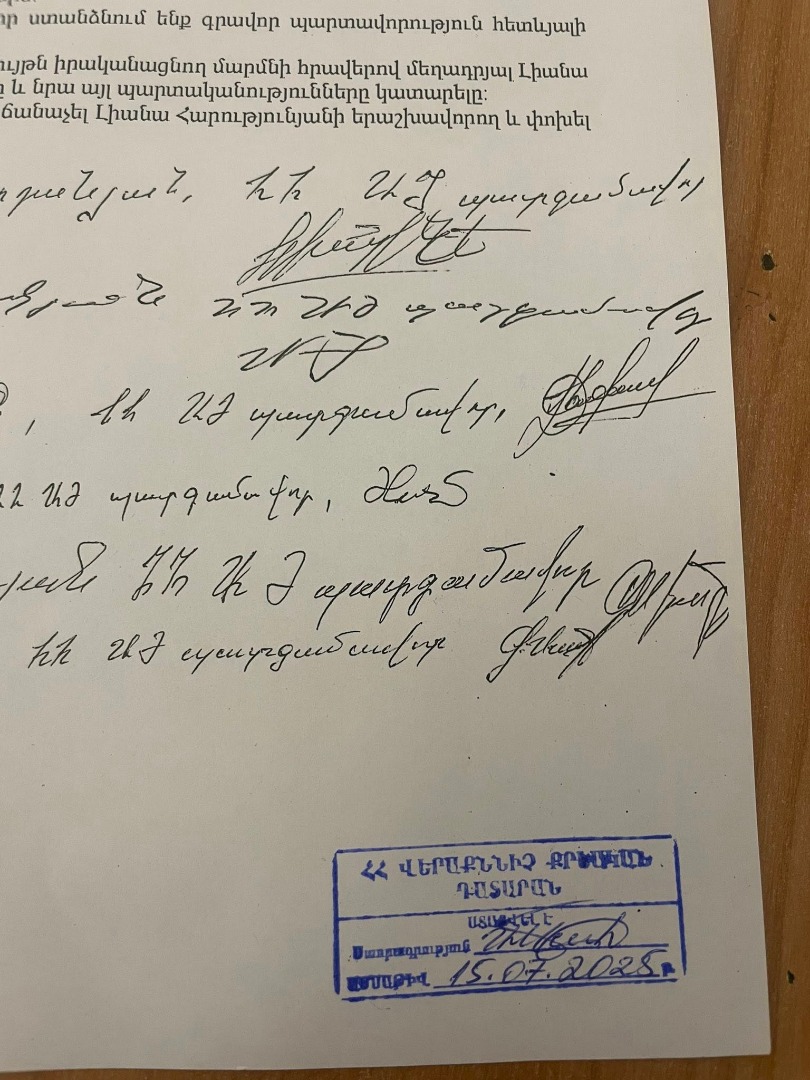 որ ստանձնում ենք գրավոր պարտավորություն հետևյալի
ույթն իրականացնող մարմնի հրավերով մեղադրյալ Լիանա
ը և նրա այլ պարտականությունները կատարելը։
ճանաչել Լիանա Հարությունյանի երաշխավորող և փոխել
ՀՀ ԱԺ պատգամավոր
ՀՀ ԱԺ պատգամավոր
, ՀՀ ԱԺ պատգամավոր,
ՀՀ ԱԺ պատգամավոր,
յան ՀՀ ԱԺ պատգամավոր
ՀՀ ԱԺ պատգամավոր
ՀՀ ՎԵՐԱՔՆՆԻՉ ՔՐԵԱԿԱՆ
ԴԱՏԱՐԱՆ
ՍՏԱՑՎԵԼ Է
Ստորագրությաց
ԱՄՍԱԹԻՎ 15.07.2025թ